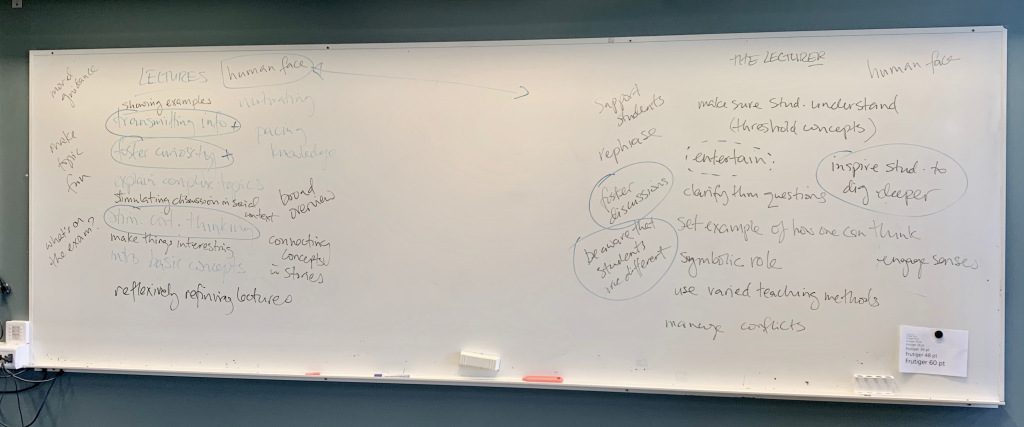 more of
guidance
make
topic
fun
what's on
the exam?
LECTURES
human face
showing examples
transmitting info +
foster curiosity +
explain complex topics
stimulating discussion in social
context
stim. crit. thinking
make things interesting
intro basic concepts
reflexively refining lectures
motivating
pacing
knowledge
broad
overview
connecting
concepts
in stories
THE LECTURER
human face
support
students
rephrase
foster
discussions
be aware that
students
are different
make sure stud. understand
(threshold concepts)
entertain
clarify thru questions
set example of how one can think
symbolic role
use varied teaching methods
manage conflicts
inspire stud. to
dig deeper
engage senses
frutiger 48 pt
frutiger 60 pt